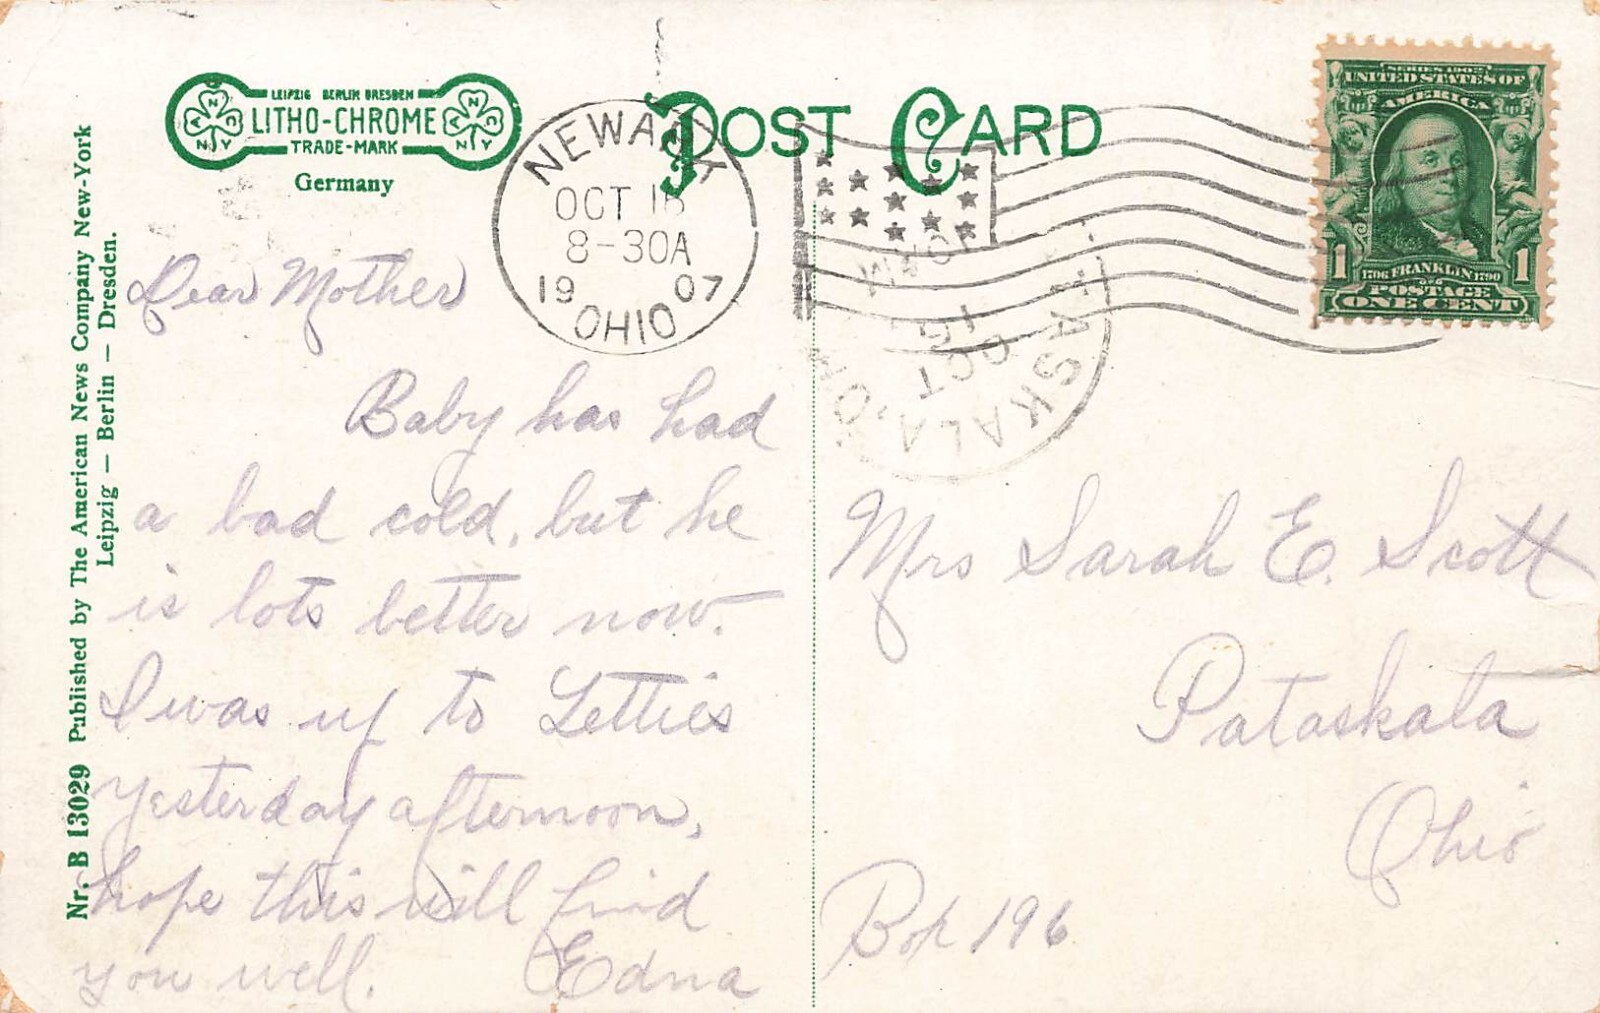 LEIPZIG BERLIN DRESDEN
LITHO-CHROME
TRADE-MARK
N Y
N Y
Germany
POST CARD
NEWARK
OCT 16
8-30A
1907
OHIO
PATASKALA, OHIO
OCT
16
10AM
SERIES 1902
UNITED STATES OF
AMERICA
1 1
1706 FRANKLIN 1790
POSTAGE
ONE CENT
Nr. B 13029 Published by The American News Company New-York
Leipzig — Berlin — Dresden.
Dear Mother
Baby has had
a bad cold, but he
is lots better now.
I was up to Letties
yesterday afternoon,
hope this will find
you well. Edna
Mrs Sarah E. Scott
Pataskala
Ohio
Box 196